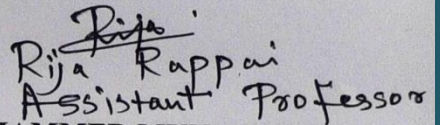 Rija
Rija Rappai
Assistant Professor